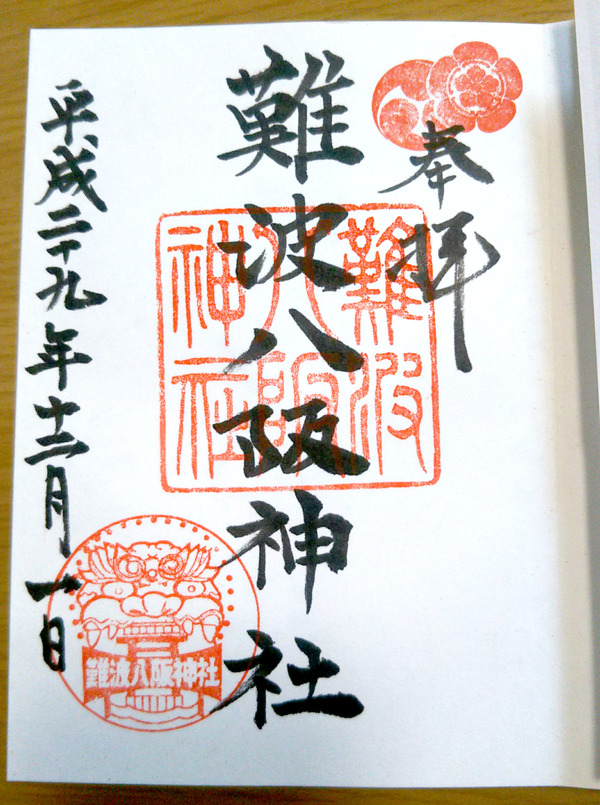 奉拝
難波八阪神社
難波
八阪
神社
平成二十九年十二月一日
難波八阪神社